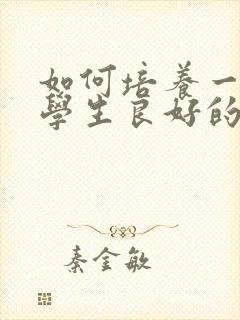 如何培养一
學生良好的
秦金敏